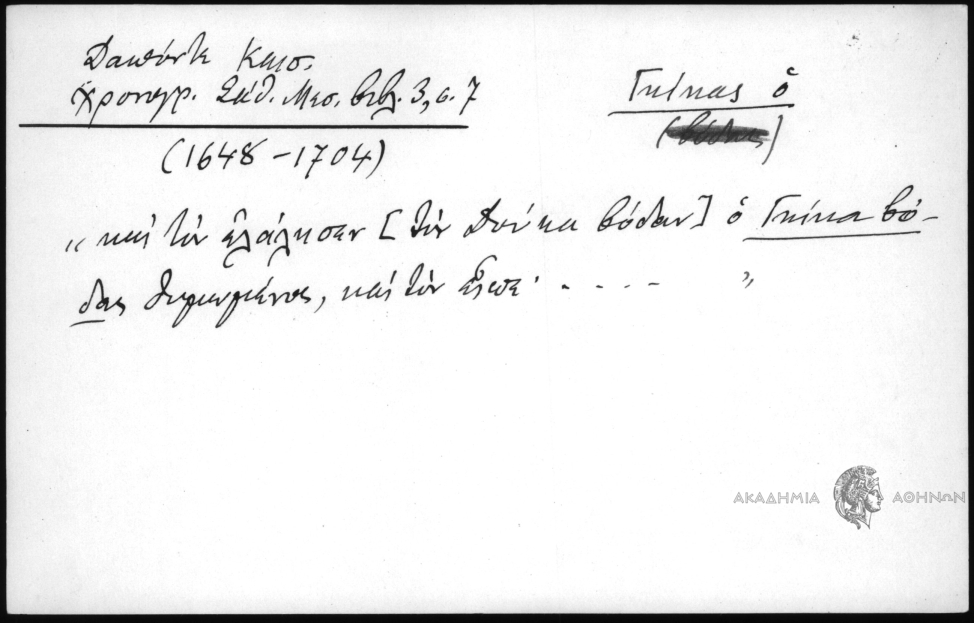 Δαπόντε Καισ.
Χρονογρ. Σάθ. Μεσ. βιβλ. 3, σ. 7
(1648-1704)
Γκίκας ὁ
(βόδας)
„ καὶ τὸν ἐλάλησεν [τὸν Δούκα βόδαν] ὁ Γκίκα βό-
δας θυμωμένος, καὶ τὸν εἶπε· . . . . "
ΑΚΑΔΗΜΙΑ ΑΘΗΝΩΝ